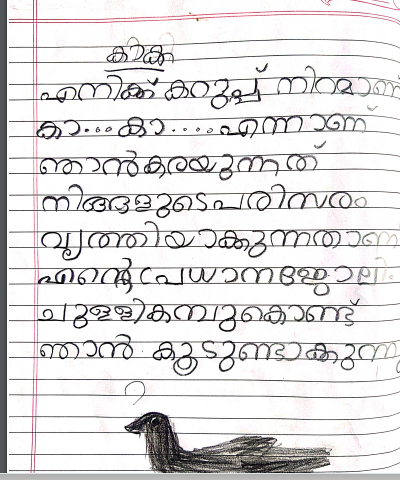 കാക്ക
എനിക്ക് കറുപ്പ് നിറമാണ്
കാ... കാ.... എന്നാണ്
ഞാൻ കരയുന്നത്
നിങ്ങളുടെ പരിസരം
വൃത്തിയാക്കുന്നതാണ്
എന്റെ പ്രധാന ജോലി.
ചുള്ളികമ്പുകൊണ്ട്
ഞാൻ കൂടുണ്ടാക്കുന്നു